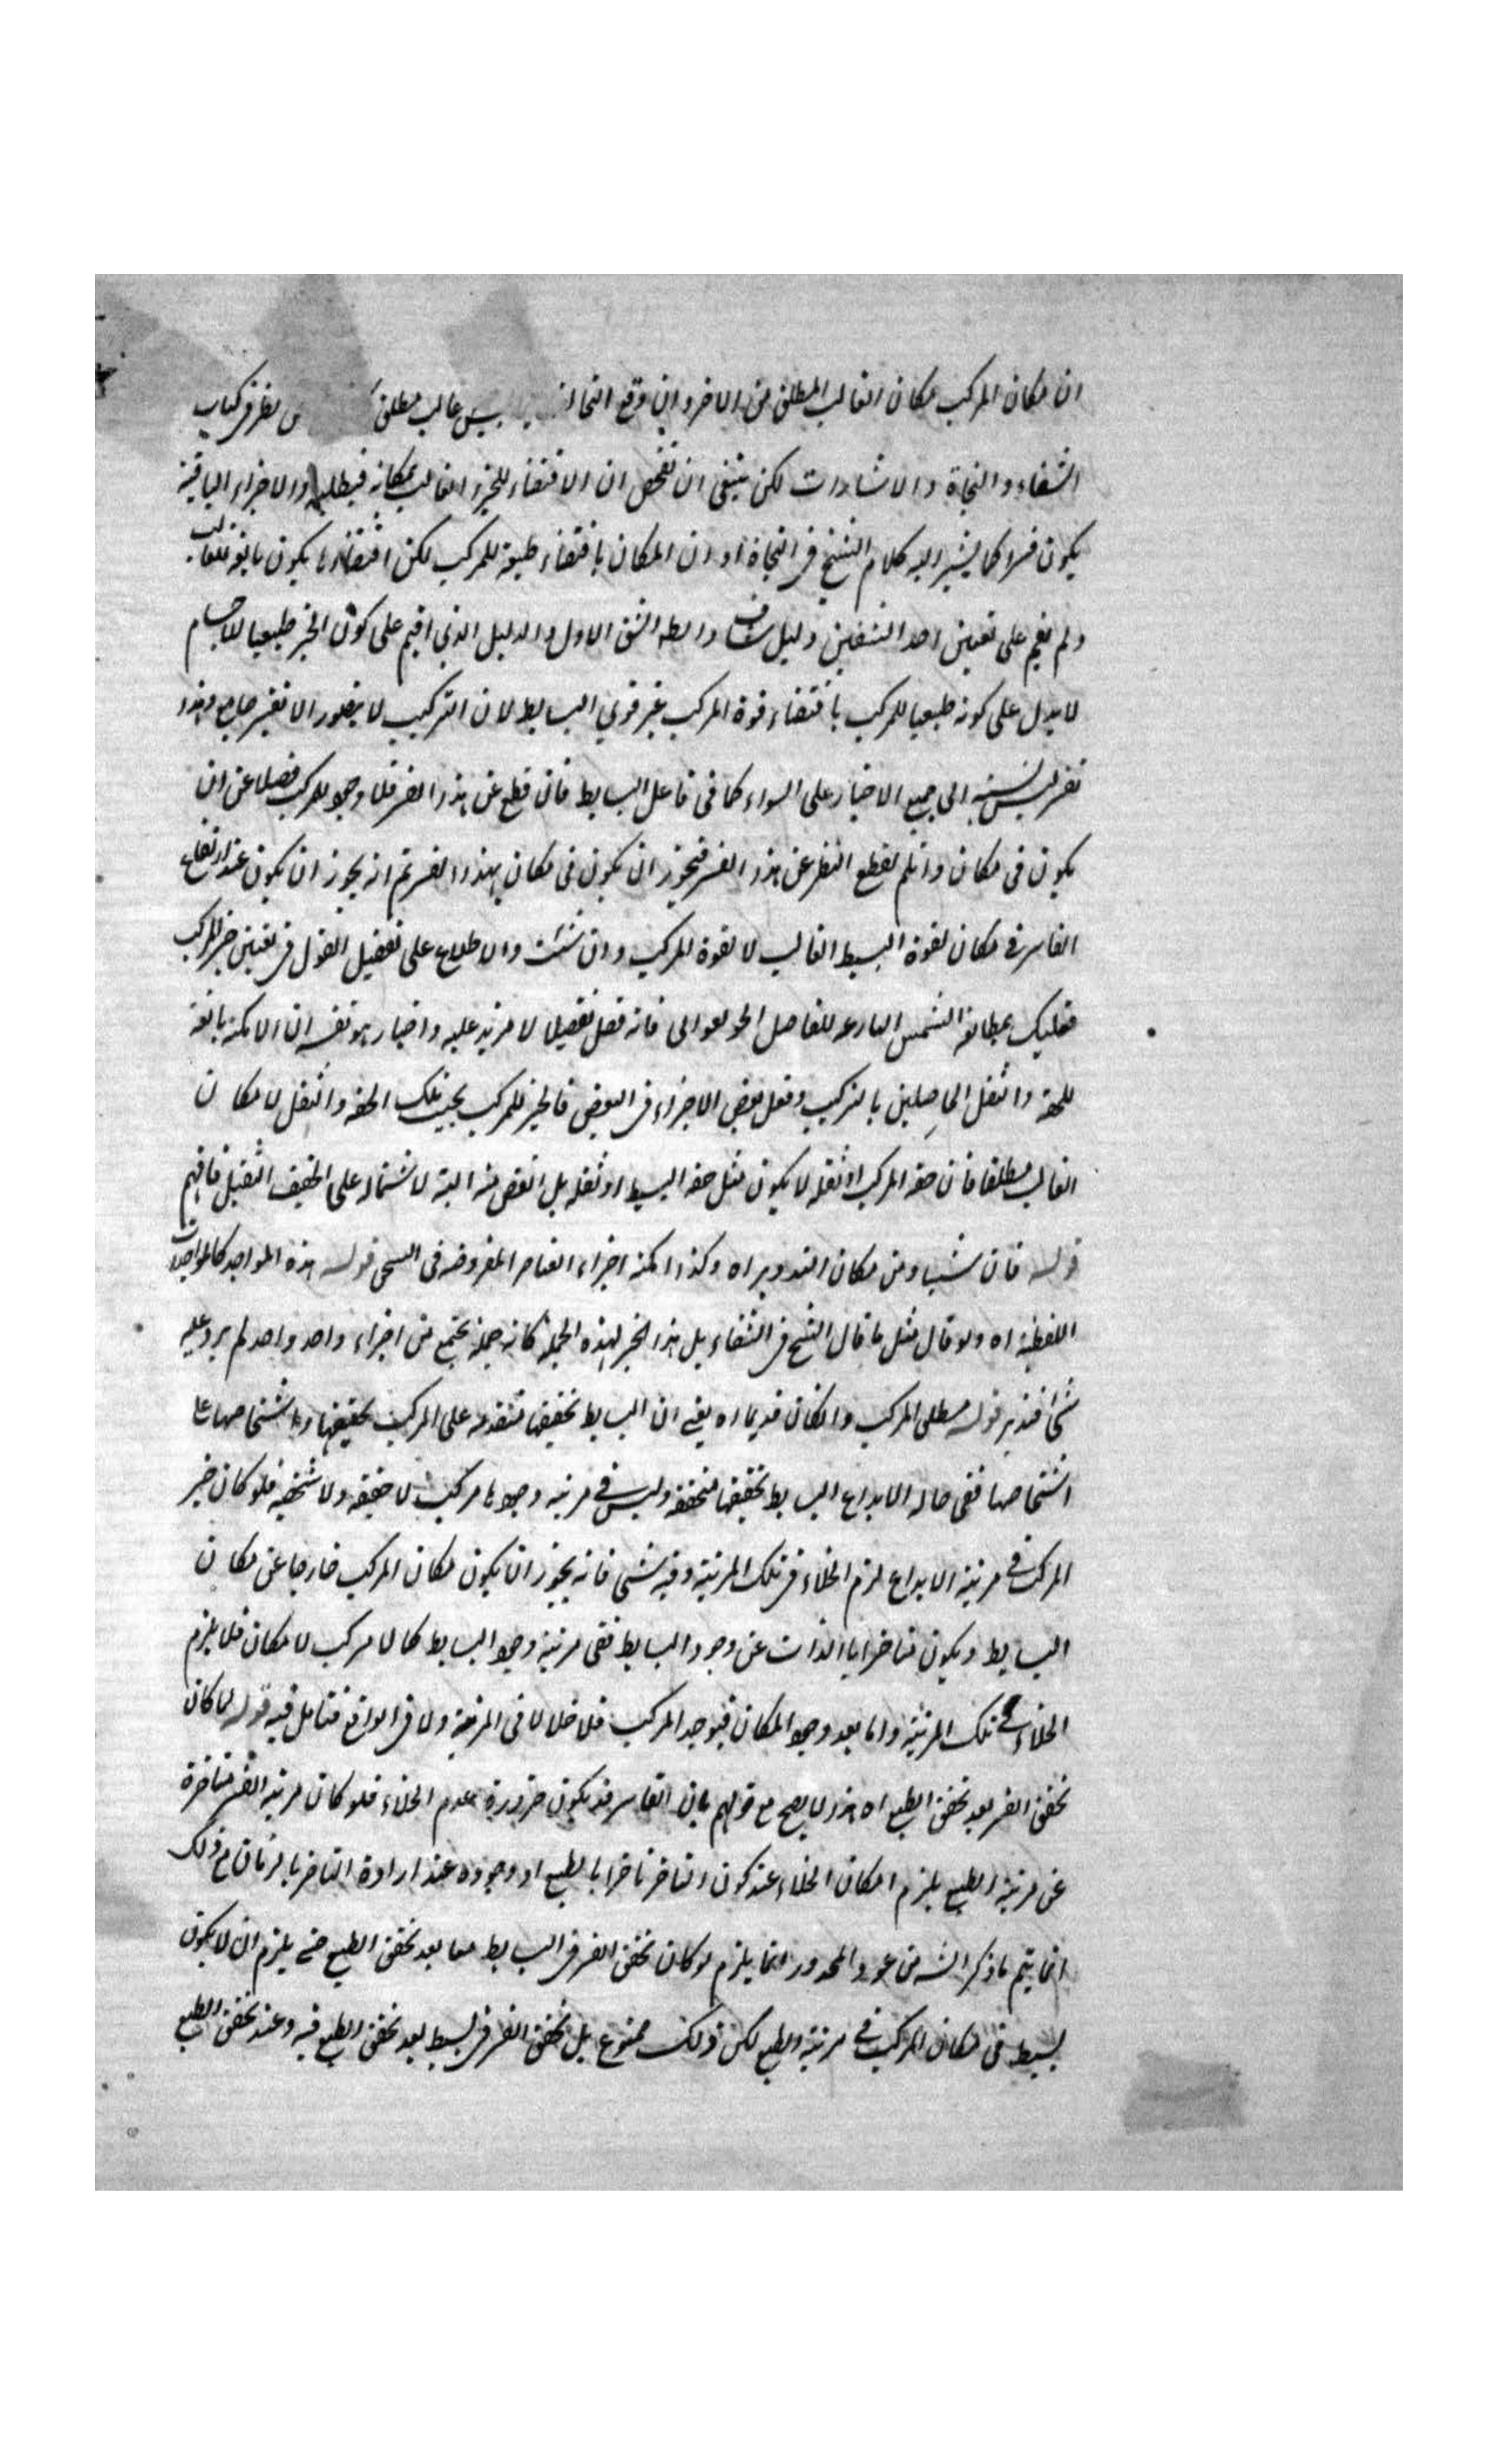 ان مكان المركب مكان الغالب المطلق من الاخر وان وقع غالب مطلق كتاب
الشفاء والنجاة والاشارات لكن ينبغي ان تفحص ان الاقتضاء للجزء الغالب بمكانه فيطلبه والاجزاء الباقية
يكون قسرا كما يشير اليه كلام الشيخ في النجاة او ان المكان باقتضاء طبيعة للمركب لكن اقتضاءها يكون تابعة للغالب
ولم يقم على تعيين احد الشقين دليل شاف والظ الشق الاول والدليل الذي اقيم على كون الحيز طبيعيا للاجسام
لا يدل على كونه طبيعيا للمركب باقتضاء قوة المركب غير قوى البسايط لان التركيب لا يتصور الا بقسر جامع وهذا
قسر ليس نسبته الى جميع الاحياز على السواء كما في فاعل البسايط فان قطع عن هذا القسر فلا وجود للمركب فضلا عن ان
يكون في مكان وان لم يقطع النظر عن هذا القسر فيجوز ان يكون في مكان بهذا القسر ثم انه يجوز ان يكون عند ارتفاع
القاسر في مكان لقوة البسيط الغالب لا لقوة المركب وان شئت والاطلاع على تفصيل القول في تعيين حيز المركب
فعليك بمطالعة الشمس البازغة للفاضل الجونفورى فانه فصل تفصيلا لا مزيد عليه واختار هو نفسه ان الامكنة تابعة
للخفة والثقل الحاصلين بالتركيب وفعل بعض الاجزاء في البعض فالحيز للمركب بحيث تلك الخفة والثقل لا مكان
الغالب مطلقا فان خفة المركب او ثقله لا يكون مثل خفة البسيط او ثقله بل انقص منه البتة لاشتماله على الخفيف الثقيل فافهم
قوله فان شيئا من مكان التدوير اه وكذا امكنة اجزاء العناصر المفروضة في قوله هذه المواجد كالمواجد
اللفظية اه ولو قال مثل ما قال الشيخ في الشفاء بل هذا الحيز لهذه الجملة كانه جملة يجتمع من اجزاء واحد واحد لم يرد عليه
شئ فتدبر قوله مطلق المركب وان كان قديما اه يعني ان البسايط بحقيقتها متقدمة على المركب بحقيقتها وباشخاصها على
اشخاصها ففي حالة الابداع البسايط بحقيقتها متحققة وليس في مرتبة وجودها مركب لا حقيقة ولا شخصية فلو كان حيز
المركب في مرتبة الابداع لزم الخلاء في تلك المرتبة وفيه شئ فانه يجوز ان يكون مكان المركب خارجا عن مكان
البسايط ويكون متاخرا بالذات عن وجود البسايط ففي مرتبة وجود البسايط كما لا مركب لا مكان فلا يلزم
الخلاء في تلك المرتبة واما بعد وجود المكان فيوجد المركب فلا خلا لا في المرتبة ولا في الواقع فتامل فيه قوله لما كان
تحقق القسر بعد تحقق الطبع اه هذا لا يصح مع قولهم بان القاسر قد يكون ضرورة عدم الخلاء فلو كان مرتبة القسر متاخرة
عن مرتبة الطبع يلزم امكان الخلاء عند كون التاخر تاخرا بالطبع او وجوده عند ارادة التاخر بالزمان مع ذلك
انما يتم ما ذكر الشه من عود المحذور انما يلزم لو كان تحقق القسر في البسايط معا بعد تحقق الطبع حتى يلزم ان لا يكون
بسيط في مكان المركب في مرتبة الطبع لكن ذلك ممنوع بل تحقق القسر في بسيط بعد تحقق الطبع فيه وعند تحقق الطبع